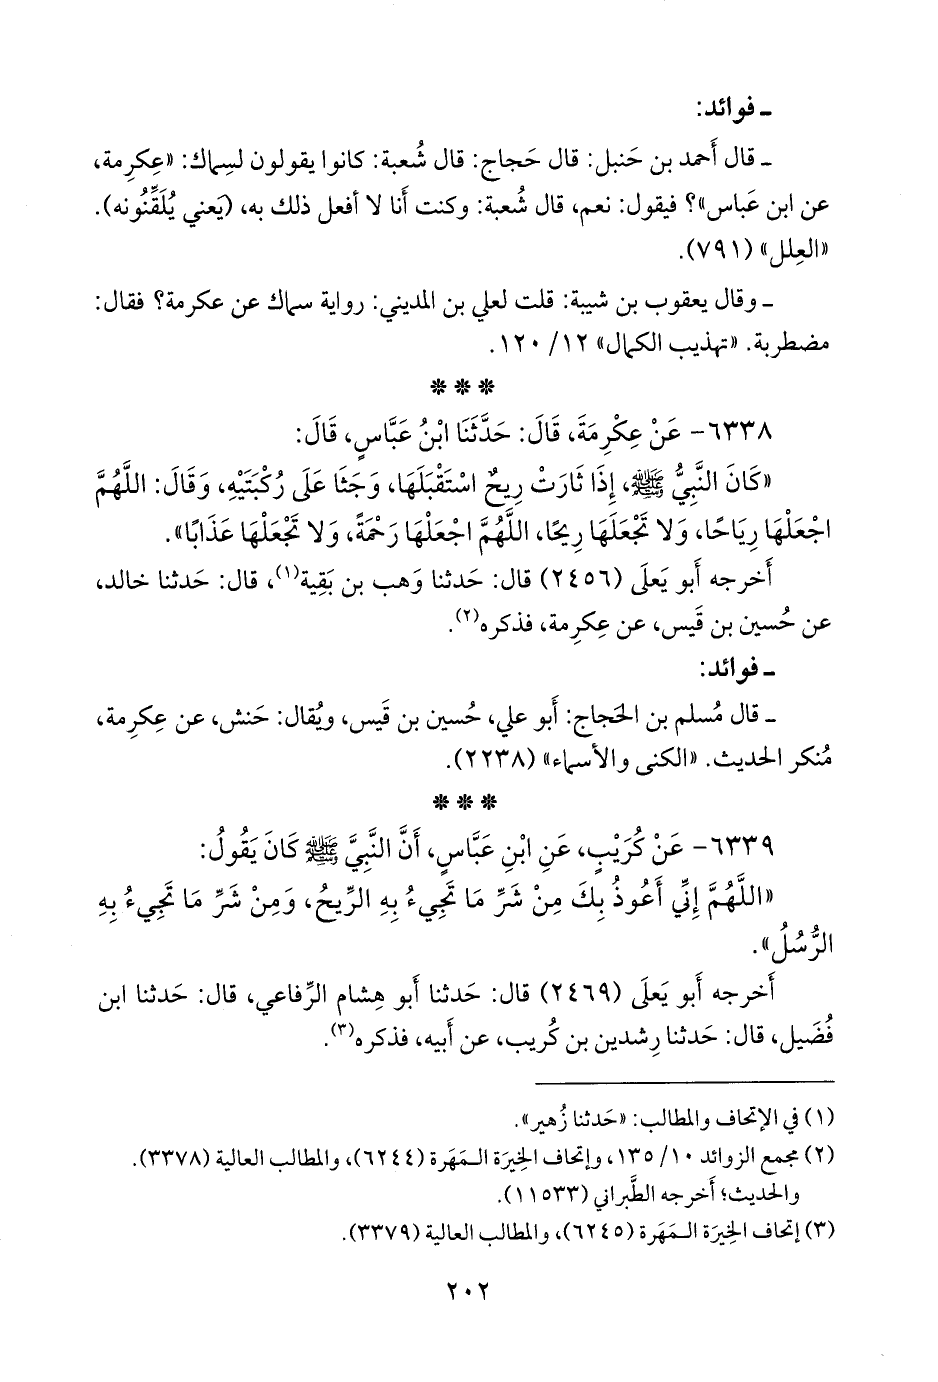 ـ فوائد:
ـ قال أَحمد بن حَنبل: قال حَجاج: قال شُعبة: كانوا يقولون لسِماك: «عِكرِمة،
عن ابن عَباس»؟ فيقول: نعم، قال شُعبة: وكنت أَنا لا أَفعل ذلك به، (يَعني يُلَقِّنُونه).
«العِلل» (٧٩١).
ـ وقال يعقوب بن شيبة: قلت لعلي بن المديني: رواية سماك عن عكرمة؟ فقال:
مضطربة. «تهذيب الكمال» ١٢/ ١٢٠.
* * *
٦٣٣٨- عَنْ عِكْرِمَةَ، قَالَ: حَدَّثَنَا ابْنُ عَبَّاسٍ، قَالَ:
«كَانَ النَّبِيُّ ﷺ، إِذَا ثَارَتْ رِيحٌ اسْتَقْبَلَهَا، وَجَثَا عَلَى رُكْبَتَيْهِ، وَقَالَ: اللَّهُمَّ
اجْعَلْهَا رِيَاحًا، وَلَا تَجْعَلْهَا رِيحًا، اللَّهُمَّ اجْعَلْهَا رَحْمَةً، وَلَا تَجْعَلْهَا عَذَابًا».
أَخرجه أَبو يَعلَى (٢٤٥٦) قال: حَدثنا وَهب بن بَقِية(١)، قال: حَدثنا خالد،
عن حُسين بن قَيس، عن عِكرِمة، فذكره(٢).
ـ فوائد:
ـ قال مُسلم بن الحَجاج: أَبو علي، حُسين بن قَيس، ويُقال: حَنش، عن عِكرِمة،
مُنكر الحديث. «الكنى والأسماء» (٢٢٣٨).
* * *
٦٣٣٩- عَنْ كُرَيْبٍ، عَنِ ابْنِ عَبَّاسٍ، أَنَّ النَّبِيَّ ﷺ كَانَ يَقُولُ:
«اللَّهُمَّ إِنِّي أَعُوذُ بِكَ مِنْ شَرِّ مَا تَجِيءُ بِهِ الرِّيحُ، وَمِنْ شَرِّ مَا تَجِيءُ بِهِ
الرُّسُلُ».
أَخرجه أَبو يَعلَى (٢٤٦٩) قال: حَدثنا أَبو هِشام الرِّفاعي، قال: حَدثنا ابن
فُضَيل، قال: حَدثنا رِشدين بن كُريب، عن أَبيه، فذكره(٣).
(١) في الإتحاف والمطالب: «حَدثنا زُهير».
(٢) مجمع الزوائد ١٠/ ١٣٥، وإتحاف الخِيرَة المَهَرة (٦٢٤٤)، والمطالب العالية (٣٣٧٨).
والحديث؛ أَخرجه الطَّبراني (١١٥٣٣).
(٣) إتحاف الخِيرَة المَهَرة (٦٢٤٥)، والمطالب العالية (٣٣٧٩).
٢٠٢